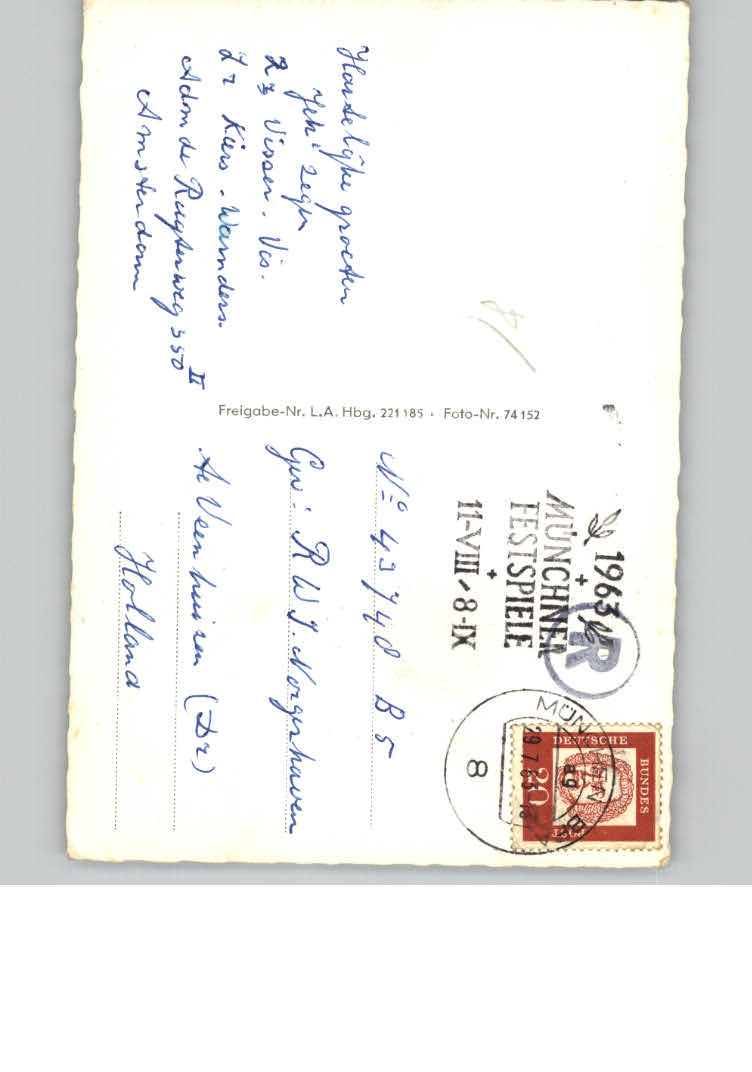 Hartelijke groeten
Jeh: zegen
Zr Visser - Vis.
Zr Kiers - Warnders.
Adm de Ruyterweg 350 II
Amsterdam
Freigabe-Nr. L.A. Hbg. 221 185 · Foto-Nr. 74 152
1963
+
MÜNCHNER
FESTSPIELE
+
11-VIII - 8-IX
R
MÜNCHEN
29.7.63
8
DEUTSCHE
BUNDES
POST
20
No 43740 B 5
Gev: R W I. Norgerhaven
te Veenhuizen (Dr)
Holland